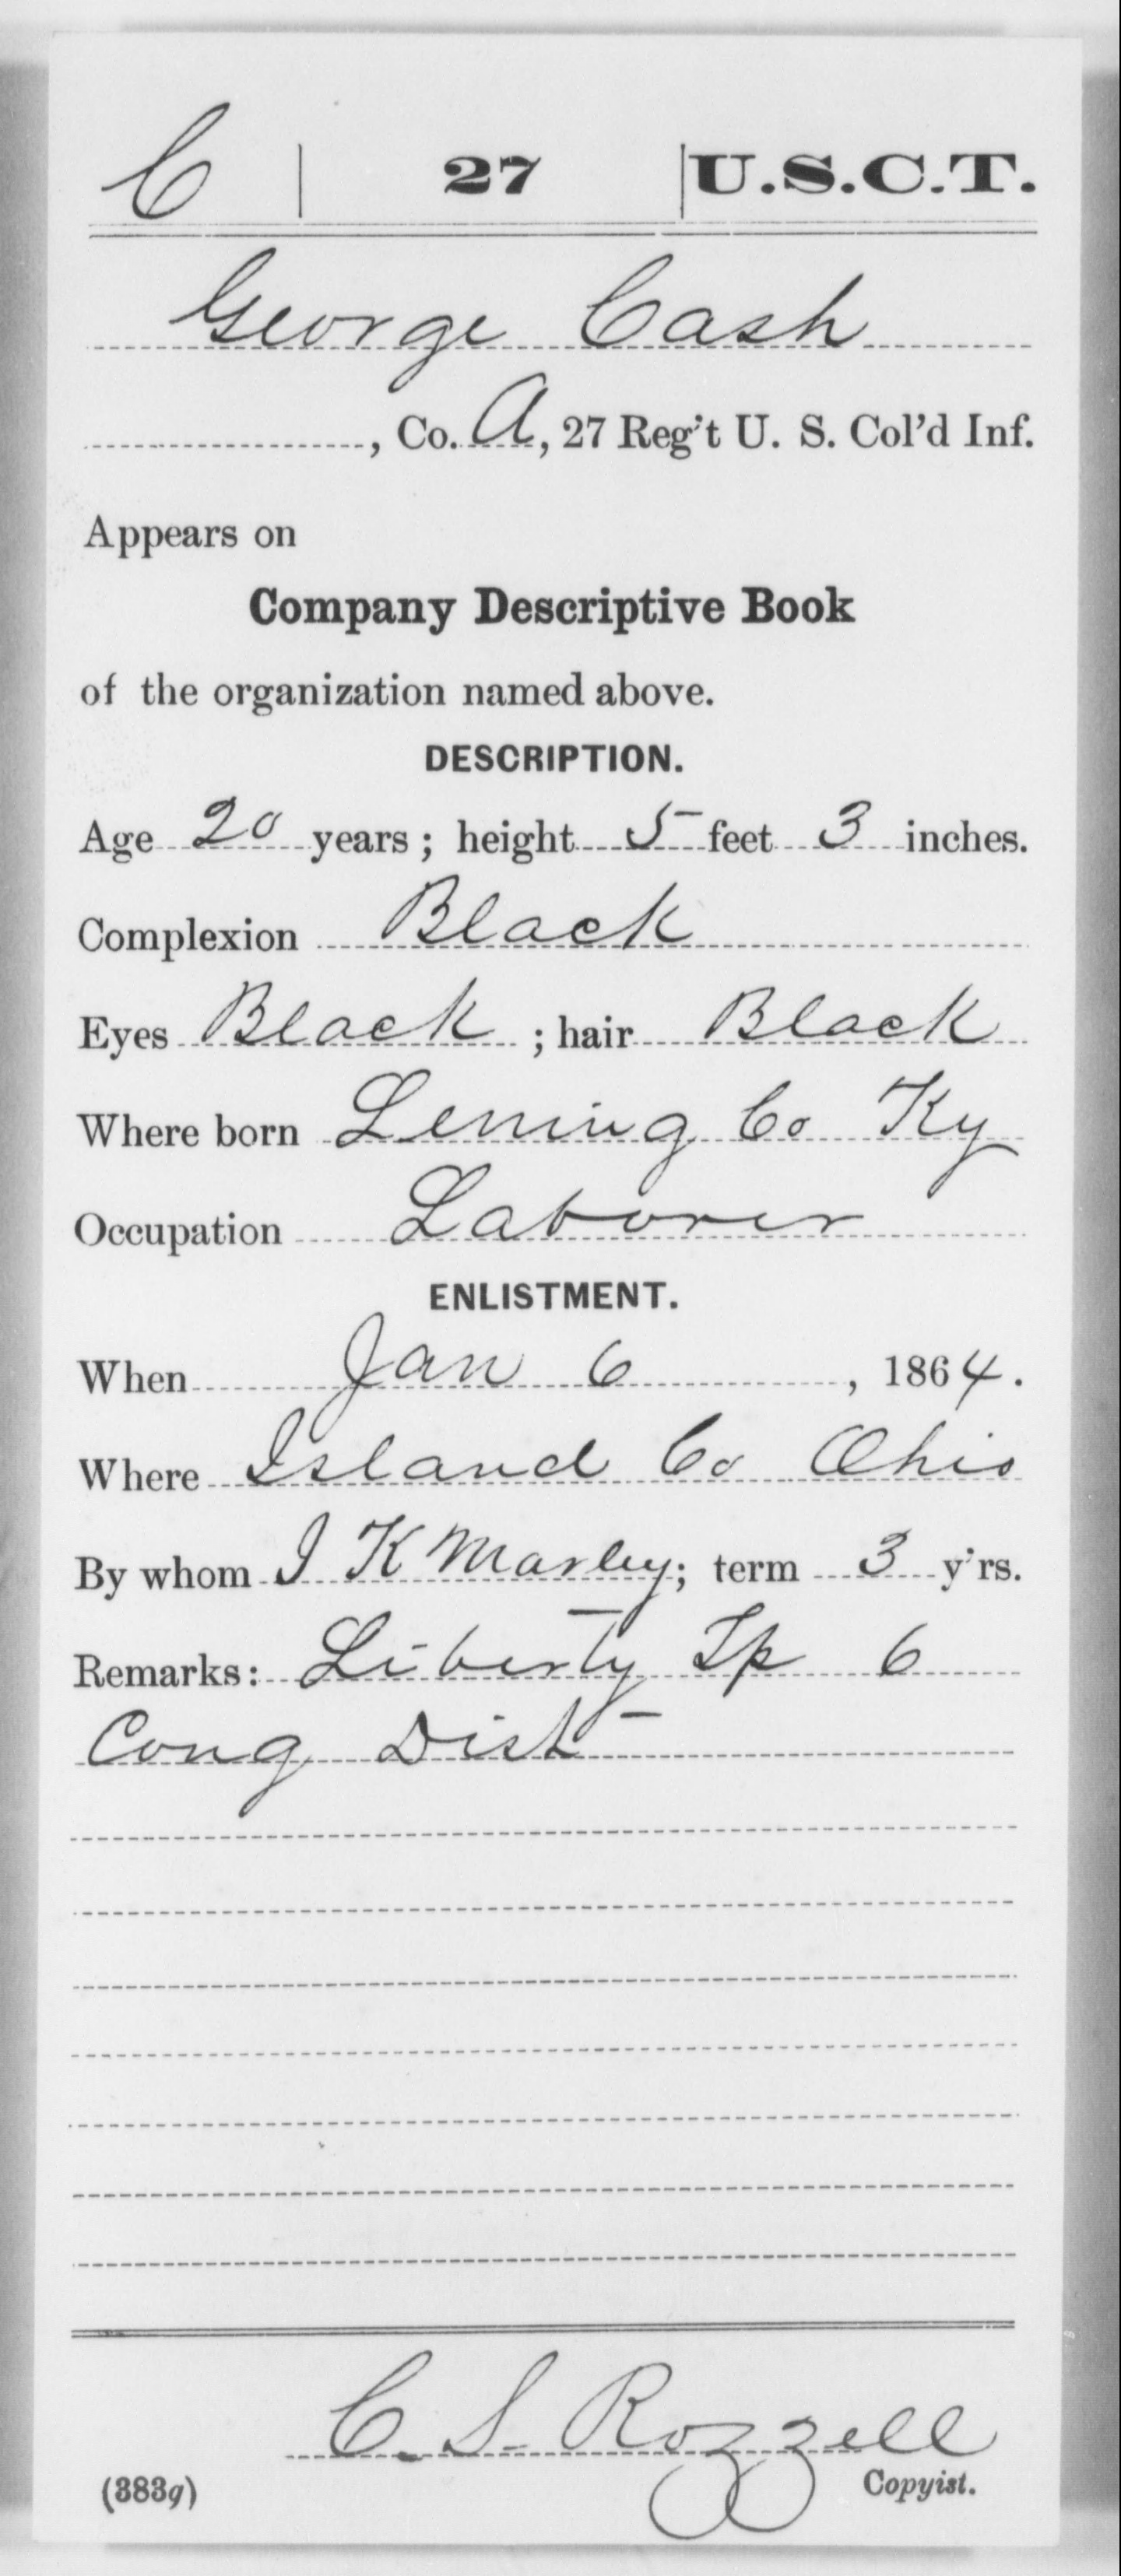 C | 27 | U.S.C.T.
George Cash
, Co. A, 27 Reg't U. S. Col'd Inf.
Appears on
Company Descriptive Book
of the organization named above.
DESCRIPTION.
Age 20 years; height 5 feet 3 inches.
Complexion Black
Eyes Black; hair Black
Where born Lening Co Ky
Occupation Laborer
ENLISTMENT.
When Jan 6, 1864.
Where Island Co Ohio
By whom J K Marley; term 3 y'rs.
Remarks: Liberty Tp 6
Cong Dist
C. S. Rozzell
(383g) Copyist.